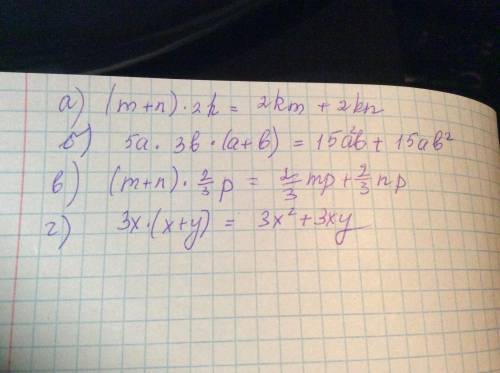 а) (m+n)·2k = 2km + 2kn
б) 5a·3b·(a+b) = 15a²b + 15ab²
в) (m+n)·2/3 p = 2/3 mp + 2/3 np
г) 3x·(x+y) = 3x² + 3xy